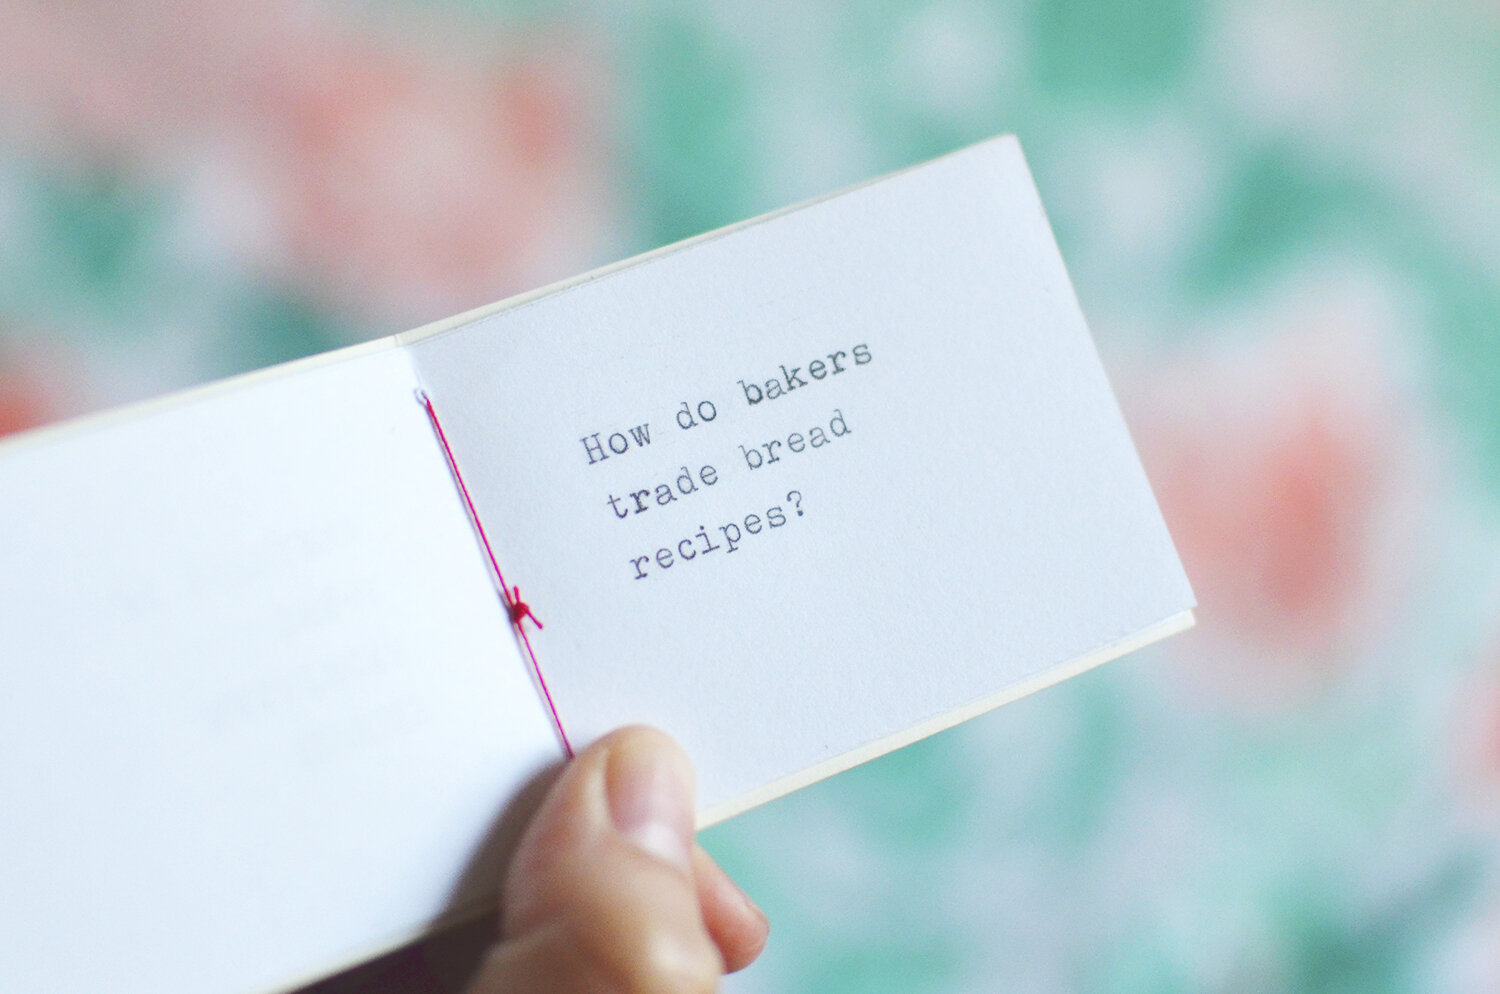 How do bakers
trade bread
recipes?